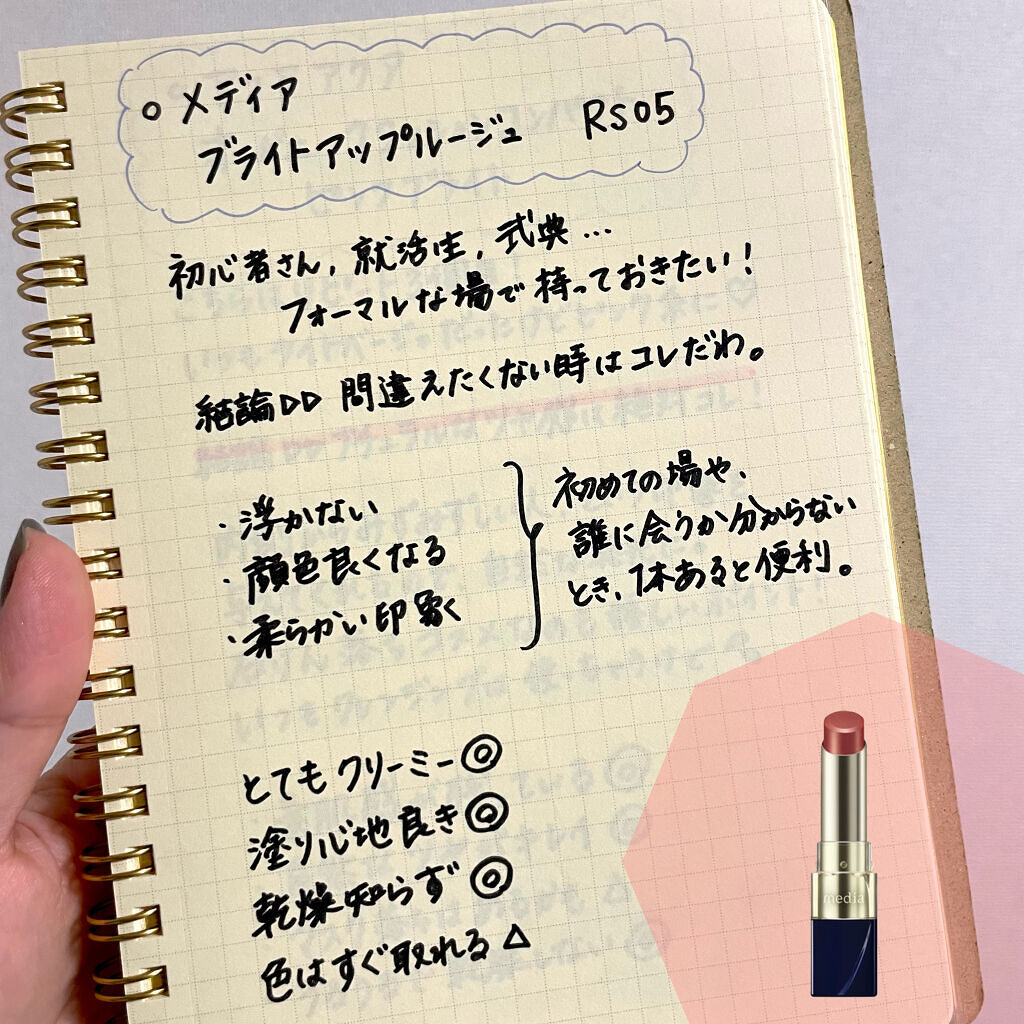 ○ メディア
ブライトアップルージュ RS05
初心者さん, 就活生, 式典…
フォーマルな場で持っておきたい！
結論▷▷ 間違えたくない時はコレだわ。
・浮かない
・顔色良くなる
・柔らかい印象
初めての場や、
誰に会うか分からない
とき、1本あると便利。
とてもクリーミー◎
塗り心地良き◎
乾燥知らず◎
色はすぐ取れる△
media